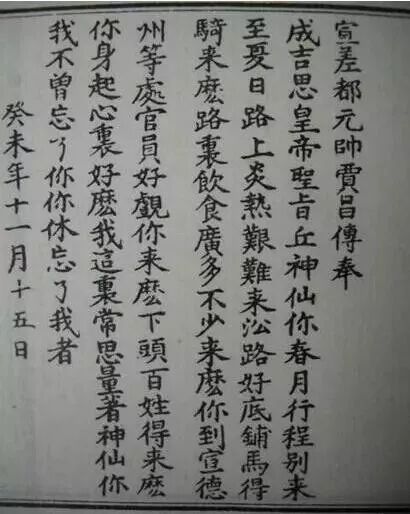 宣差都元帥賈昌傳奉
成吉思皇帝聖旨丘神仙你春月行程別来
至夏日路上炎熱艱難来沿路好底鋪馬得
騎来麽路裏飲食廣多不少来麽你到宣德
州等處官員好覷你来麽下頭百姓得来麽
你身起心裏好麽我這裏常思量著神仙你
我不曾忘了你你休忘了我者
癸未年十一月十五日